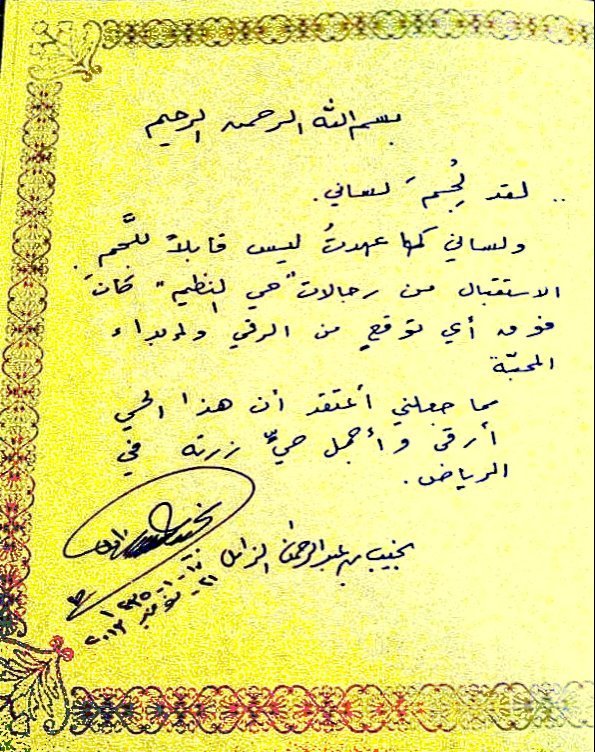 بسم الله الرحمن الرحيم
.. لقد لُجِمَ لساني.
ولساني كما عهدتُ ليس قابلاً للَّجم.
الاستقبال من رجالات "حي النظيم" كان
فوق أي توقعٍ من الرقي ولإبداء
المحبّة
مما جعلني أعتقد أن هذا الحي
أرقى وأجمل حيٍّ زرته في
الرياض.
نجيب بن عبدالرحمن الزامل
١٧-١-١٤٣٥ هـ
٢١-نوفمبر ٢٠١٣